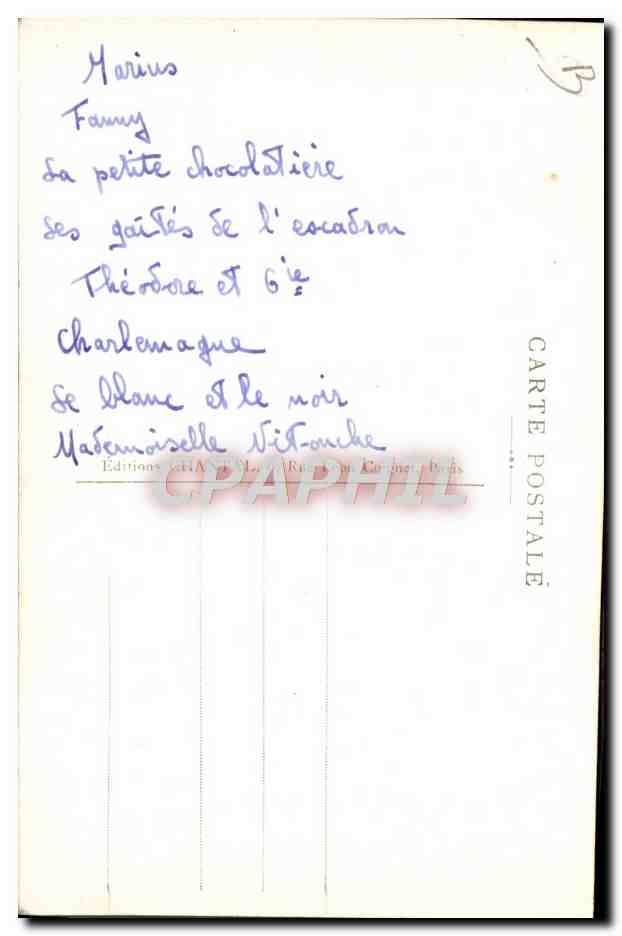 B
Marius
Fanny
La petite chocolatière
Les gaîtés de l'escadron
Théodore et Cie
Charlemagne
Le blanc et le noir
Mademoiselle Nitouche
Editions CHANTAL, Rue Léon Cogniet, Paris
CPAPHIL
CARTE POSTALE